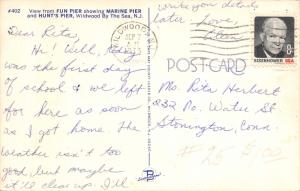 #402 View from FUN PIER showing MARINE PIER
and HUNT'S PIER, Wildwood By The Sea, N.J.
Dear Reta,
Hi! Well, today
was the first day
of school & we left
for here as soon
as I got home. The
weather isn't too
good, but maybe
it'll clear up. I'll
write you details
later. Love,
WILDWOOD
SEP
POST CARD
EISENHOWER·USA
8c
Ms. Rita Herbert
232 No. Water St
Stonington, Conn.
#25 $1.00